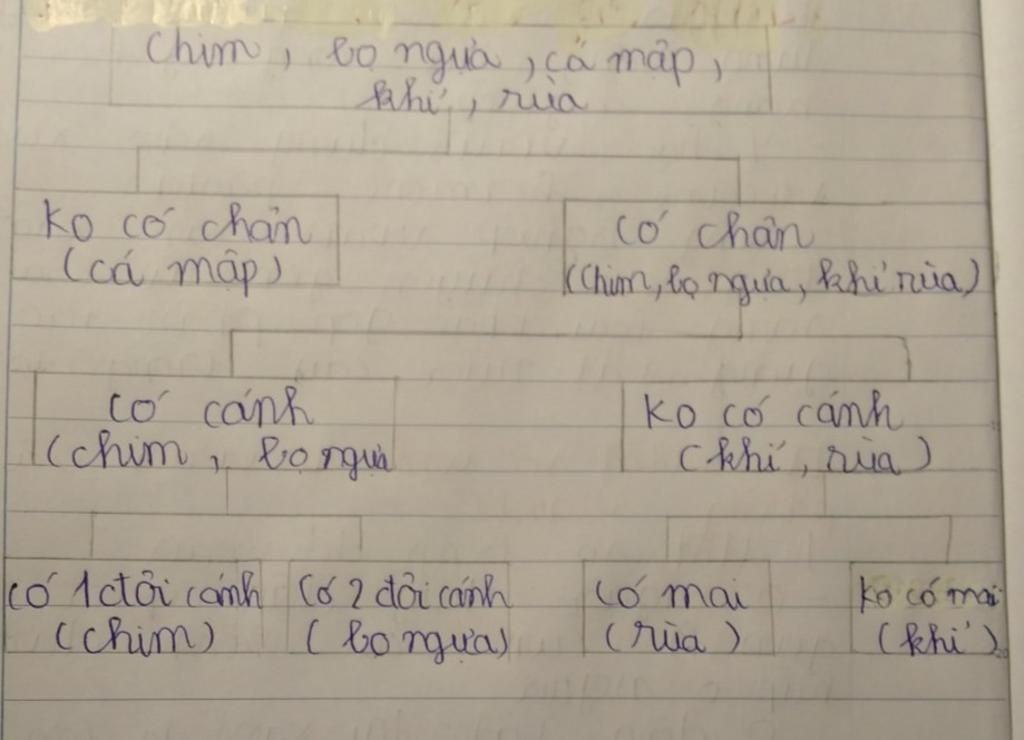 Chim, bọ ngựa, cá mập,
khỉ, rùa
Ko có chân
(cá mập)
Có chân
(Chim, bọ ngựa, khỉ rùa)
Có cánh
(chim, bọ ngựa
Ko có cánh
(khỉ, rùa)
Có 1 đôi cánh
(chim)
Có 2 đôi cánh
(bọ ngựa)
Có mai
(rùa)
Ko có mai
(khỉ)